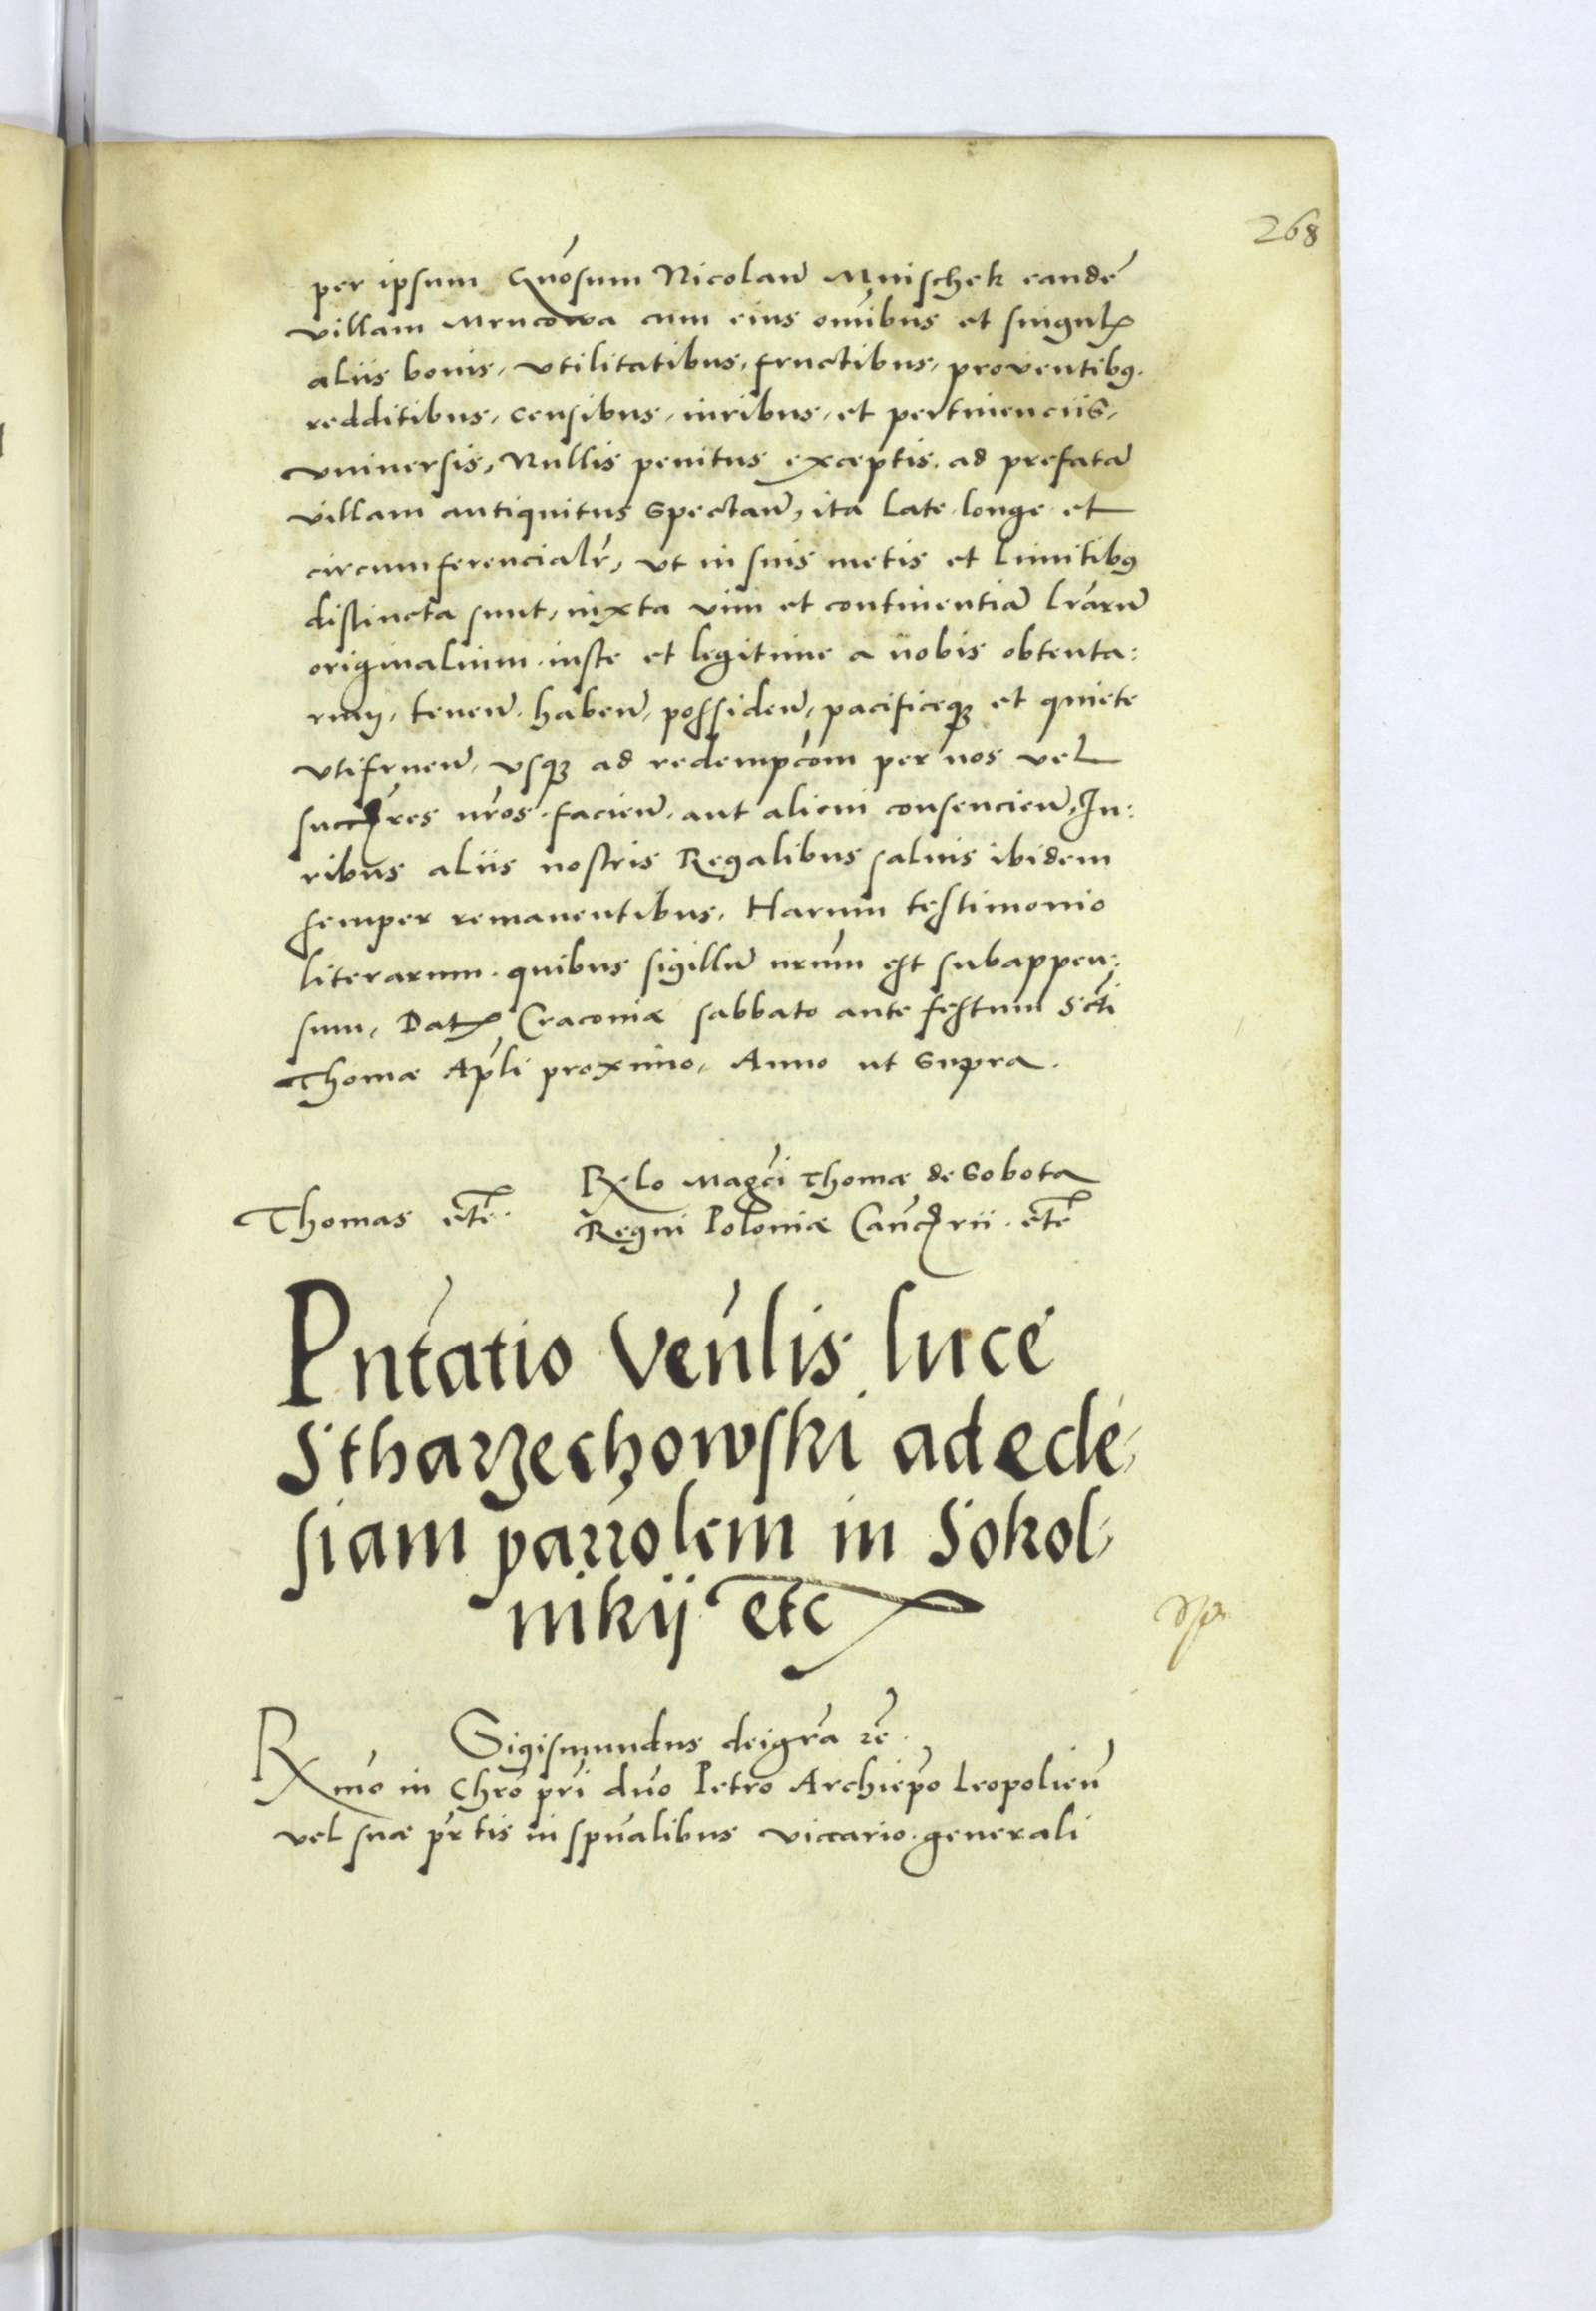 268
per ipsum Gnõsum Nicolaũ Mnischek eandẽ
villam Mrucowa cum eius om̃ibus et singulꝭ
aliis bonis, vtilitatibus, fructibus, proventibꝯ.
redditibus, censibus, iuribus, et pertinenciis,
vniuersis, Nullis penitus exceptis. ad prefatã
villam antiquitus Spectan̄, ita late longe et
circumferencialr̃, vt in suis metis et limitibꝯ
distincta sunt, iuxta vim et continentiã lr̃arũ
originalium. iuste et legitime a nobis obtenta:
rum, tenen̄. haben̄, possiden̄, pacificeqꝫ et quiete
vtifruen̄, vsqꝫ ad redempc̃om per nos vel
succ̃res nr̃os. facien̄. aut alicui consencien̄, Iu:
ribus aliis nostris Regalibus saluis ibidem
semper remanentibus. Harum testimonio
literarum. quibus sigillũ nrũm est subappen:
sum, Datꝭ Cracouiæ sabbato ante festum Sc̃ti
Thomæ Ap̃li proximo, Anno ut Supra.
Rxlo Mag̃ci Thomæ de Sobota
Thomas etc̃. Regni Poloniæ Canc̃rii. etc̃
Pnt̃atio Ven̄lis luce
Stharzechowski ad eccle,
siam parrolem in Sokol,
nikij etc
Sigismundus dei gr̃a rẽ.
Rxm̃o in Chr̃o pr̃i dn̄o Petro Archiep̃o Leopolien̄
vel suæ pr̃tis in spũalibus viccario. generali